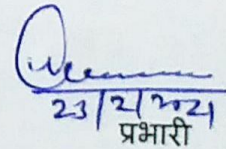 23/2/2021
प्रभारी